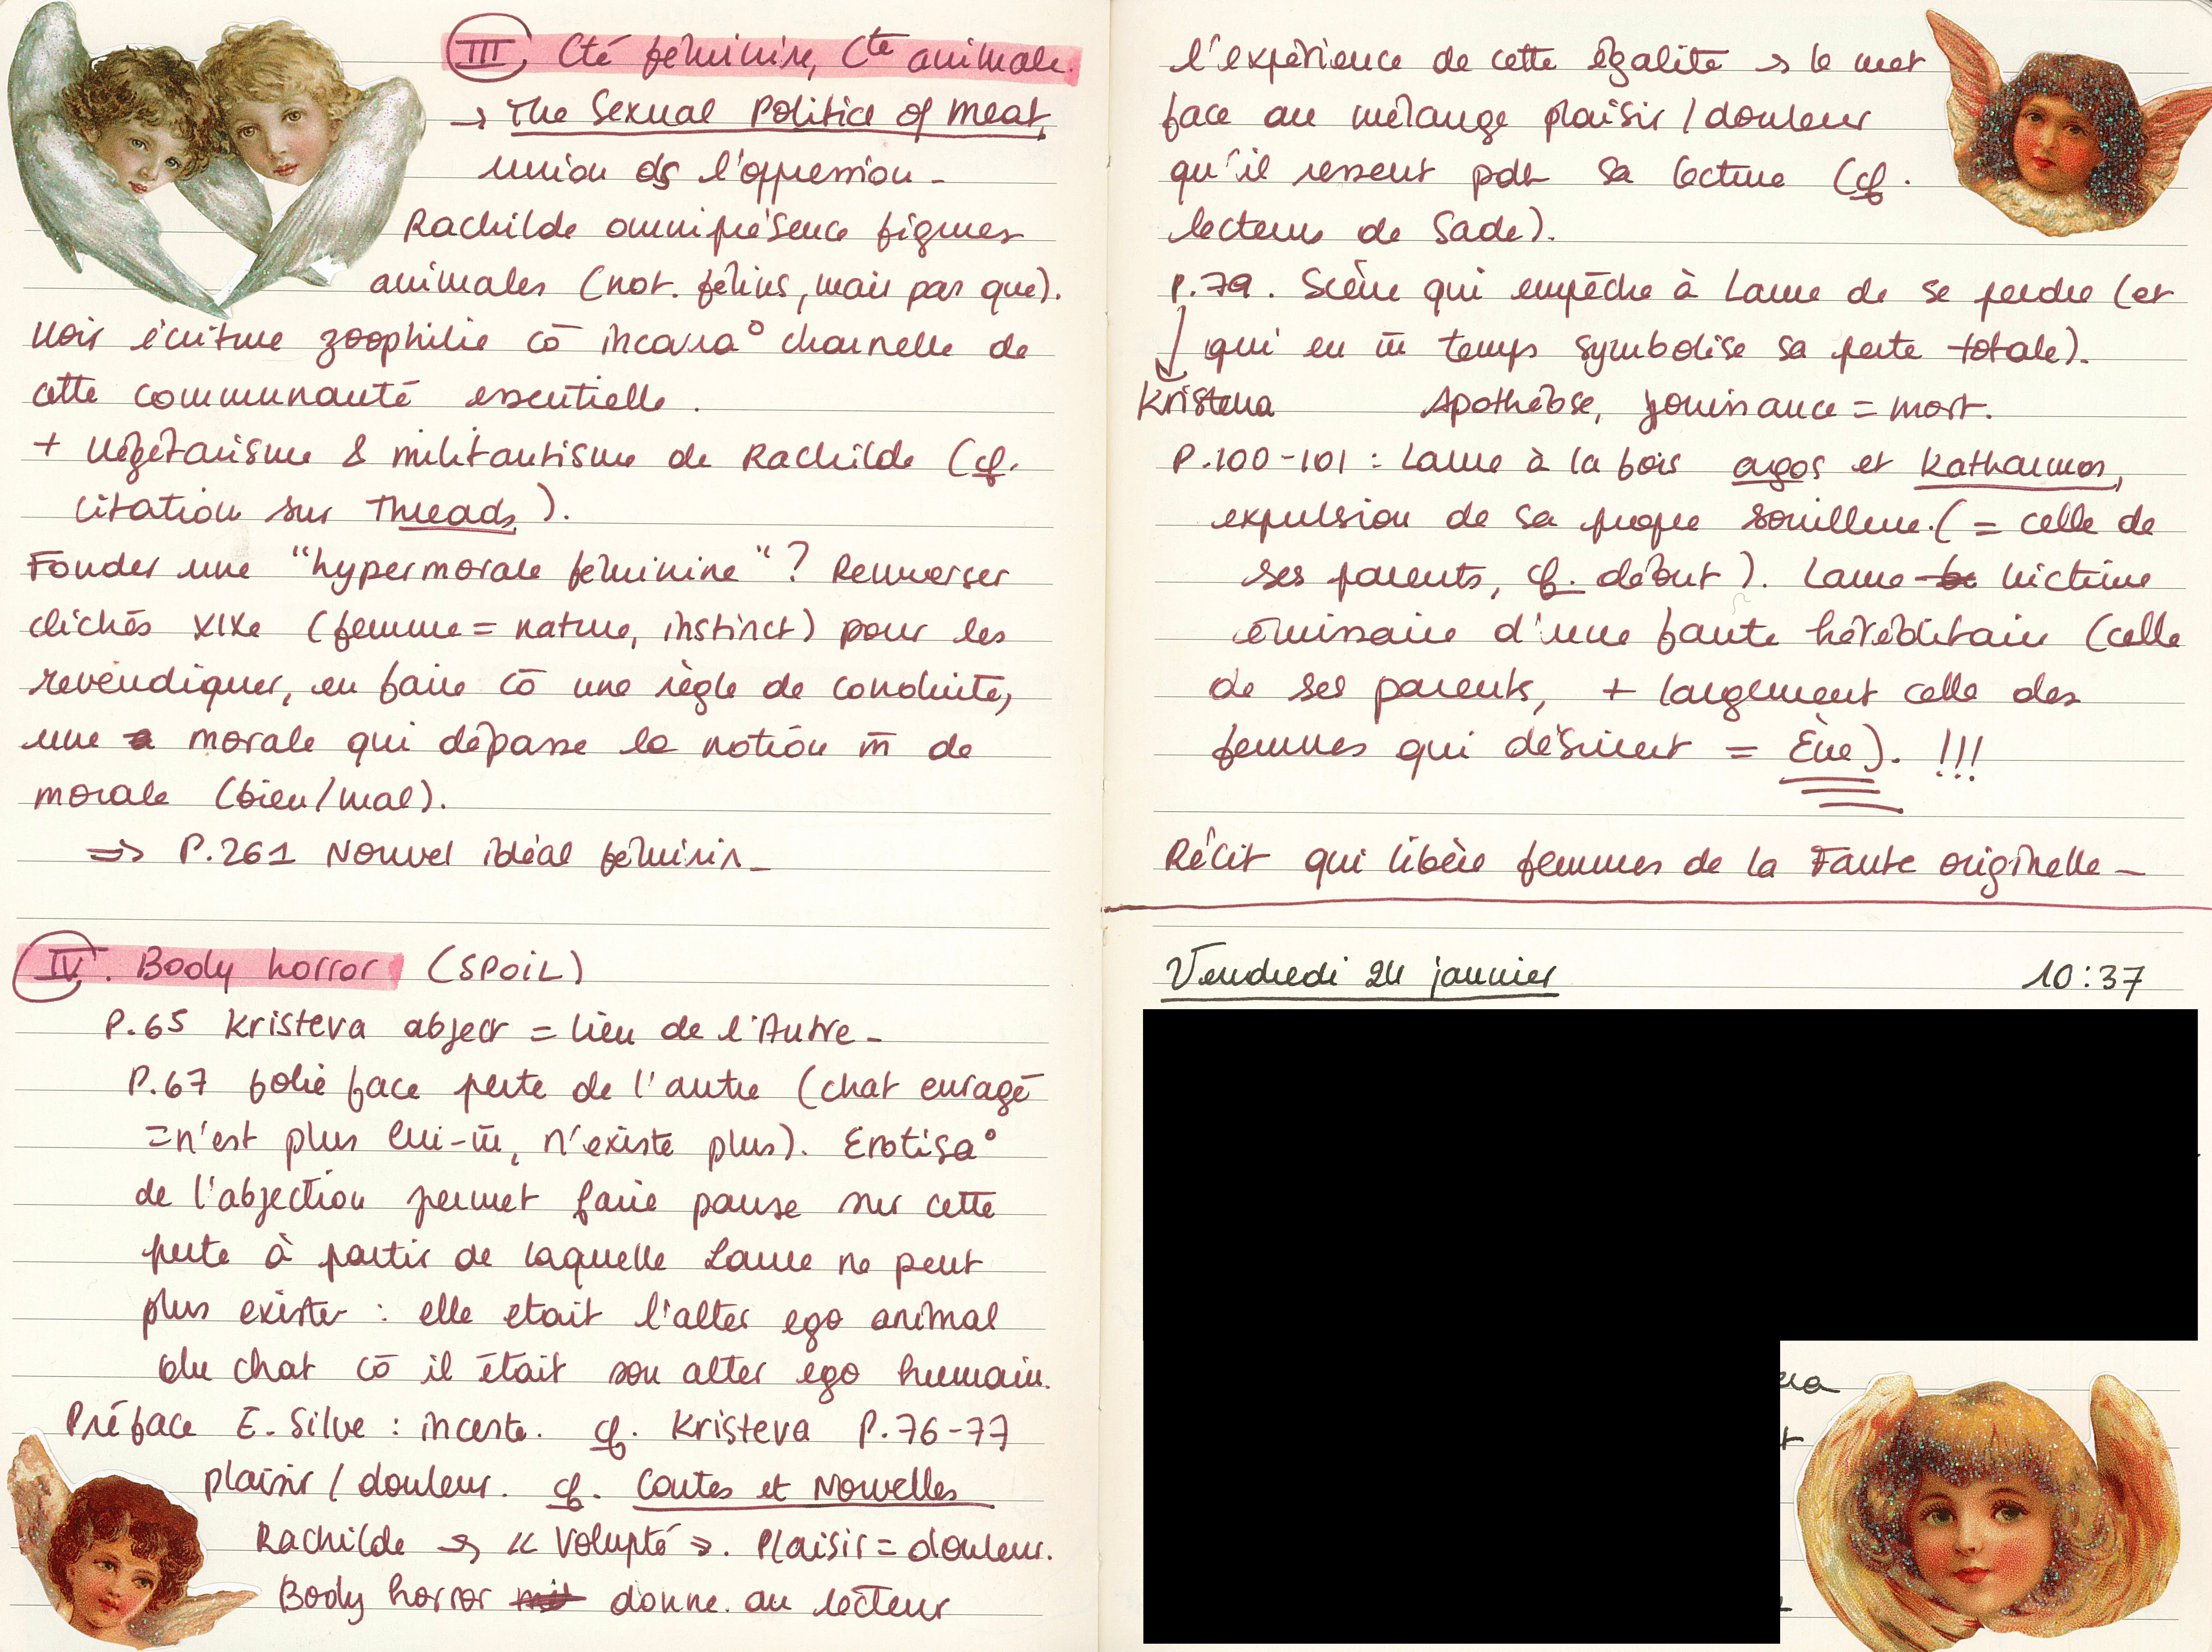 III. Cté féminine, Cté animale.
→ The Sexual Politics of Meat,
union ds l'oppression -
Rachilde omniprésence figures
animales (not. félins, mais pas que).
Voir écriture zoophilie cō incarna° charnelle de
cette communauté essentielle.
+ végétarisme & militantisme de Rachilde (cf.
citation sur Threads).
Fonder une "hypermorale féminine"? Renverser
clichés XIXe (femme = nature, instinct) pour les
revendiquer, en faire cō une règle de conduite,
une morale qui dépasse la notion m̄ de
morale (bien/mal).
⇒ P.261 Nouvel idéal féminin -
IV. Body horror (SPOIL)
P.65 Kristeva abject = lieu de l'Autre -
P.67 folie face perte de l'autre (chat enragé
= n'est plus lui-m̄, n'existe plus). Erotisa°
de l'abjection permet faire pause sur cette
perte à partir de laquelle Laure ne peut
plus exister : elle etait l'alter ego animal
du chat cō il était son alter ego humain.
Préface E. Silve : inceste. cf. Kristeva P.76-77
plaisir / douleur. cf. Contes et Nouvelles
Rachilde → « Volupté ». Plaisir = douleur.
Body horror donne au lecteur
l'expérience de cette égalité → le met
face au mélange plaisir / douleur
qu'il ressent pdt sa lecture (cf.
lecteurs de Sade).
P.79. Scène qui empêche à Laure de se perdre (et
qui en m̄ temps symbolise sa perte totale).
Kristeva Apothéose, jouissance = mort.
P.100-101 : Laure à la fois agos et Katharmos,
expulsion de sa propre souillure. (= celle de
ses parents, cf. début). Laure victime
émissaire d'une faute héréditaire (celle
de ses parents, + largement celle des
femmes qui désirent = Ève). !!!
Récit qui libère femmes de la Faute originelle -
Vendredi 24 janvier 10:37